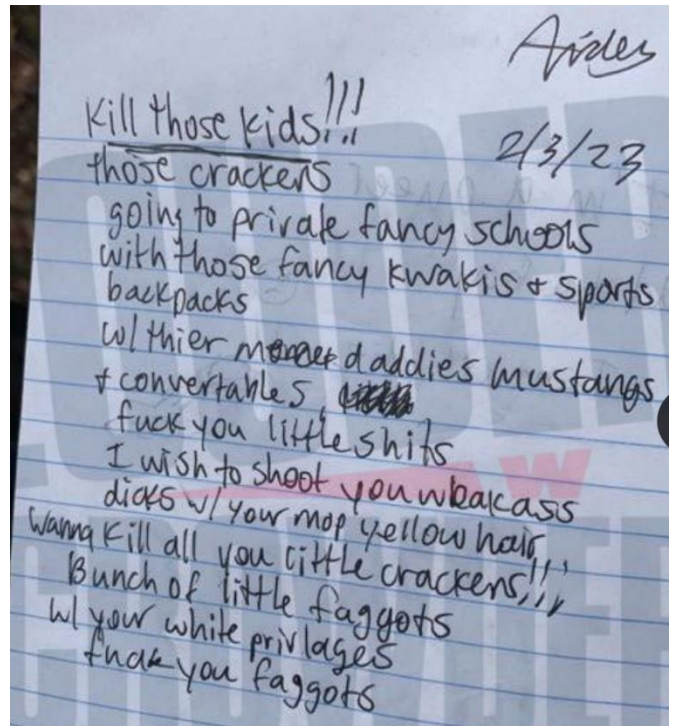 Aiden
Kill those kids!!!
2/3/23
those crackers
going to private fancy schools
with those fancy kwakis + sports
backpacks
w/ thier daddies mustangs
+ convertables,
fuck you little shits
I wish to shoot you weakass
dicks w/ your mop yellow hair
wanna kill all you little crackers!!!
Bunch of little faggots
w/ your white privlages
fuck you faggots
LOUDER
W
CROWDER